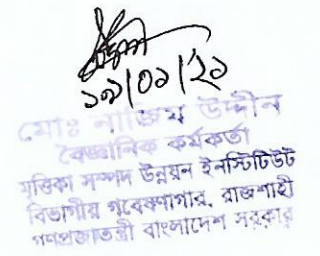 ১৯/০১/২১
মোঃ নাজিম উদ্দীন
বৈজ্ঞানিক কর্মকর্তা
মৃত্তিকা সম্পদ উন্নয়ন ইনস্টিটিউট
বিভাগীয় গবেষণাগার, রাজশাহী
গণপ্রজাতন্ত্রী বাংলাদেশ সরকার